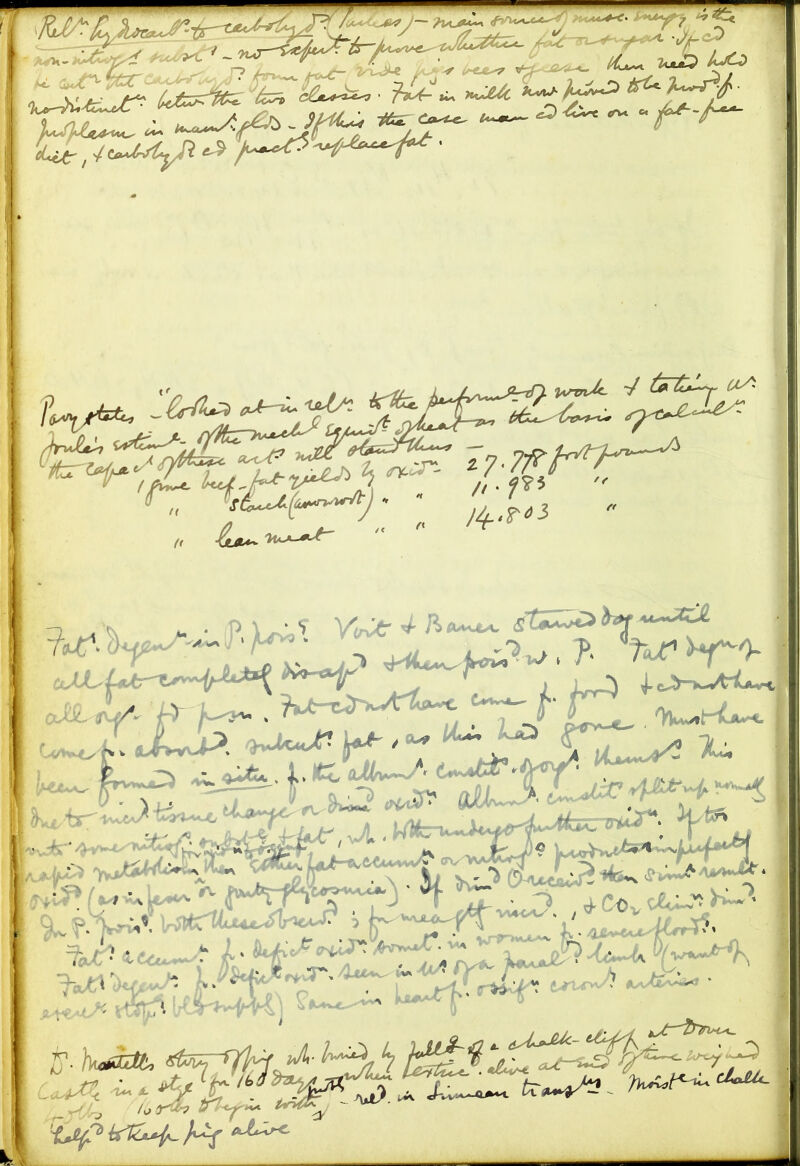 Relⁿ hydrocarbˢ to carbohydˢ (Parkes) – main source of musc. energy is the
non-nitrogˢ substˢ – no Experᵗ to prove whether fat or sugar. If cd
be certⁿ tht carbohydˢ form fat (vide pigs bees & geese) then need hold
no distinctⁿ betwⁿ the two classes. Fat in milk now proved to be prodᵈ fr.
protoplasm in mamʸ glds – If this the case man cd live on a fat-free
diet, & carbohydˢ cd practˡʸ replace fat.
Pavy states – "looked at in relⁿ to the performᶜᵉ of work & taking Dʳ
Joule's estimᵉ of the mechˡ Equivᵗ of heat as the basis of calculⁿ
the capacʸ of these artˢ will stand thus –
1 grme beef-fat yields by oxidⁿ 27.778 foot pounds
" starch (arrowroot) " " 11.983 "
" lean meat " " 14.803 "
Fatʸ Degenⁿ in P. poisᵍ Voit & Bauer starved dog until
all fat completely disapᵈ & then poisᵈ w. P. Fatʸ degⁿ of
all orgˢ fd p.m. Fat cd not have come fr. food & cd not have
come fr. absorbᵈ subcutˢ fat, as this had gone. Must have
been formed in situ fr. the albumˢ constitˢ of orgˢ themsˢ. This
due to incrᵈ tissue change or dimᵈ oxidⁿ Albumˢ constitˢ split up normally
into some nitrogˢ substᶜᵉ & fat, wh. both undergo further oxidⁿ. If too
rapid metabolism then Either fat accumˢ or nitrogˢ products imperfectly
oxidᵈ (as in fever or gouty glycosuria). If dimᵈ O receivᵈ then simʳ result.
In P. poisᵍ both these observᵈ; for urea gtly incrᵈ, & CO₂ elimⁿ dimᵈ.
Fatʸ accumⁿ fr. deficᵗ oxidⁿ sometˢ in women fr. severe floodᵍ.
Fatʸ degenⁿ fr. deficᵗ oxidⁿ seen in Mˢ of a paralᵈ limb (want of
exercˢᵉ stopˢ bld supply) Same in heart fr. ossifⁿ coronʸ arteries.
Dʳ Mantell's story of pig wh. buried by fall of a chalk-cliff at Dover
Castle in a stye for 160 days – when extricᵈ alive at end of time weighed
40 lbs (160 lbs to begin with) – relᵈ in Linnean transⁿˢ – Moistᵉ in chalk
helpᵈ to keep pig alive